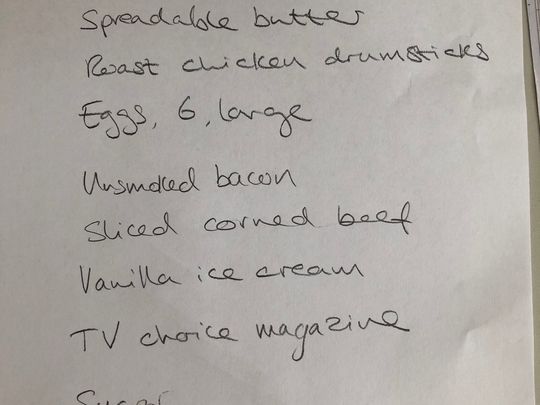 Spreadable butter
Roast chicken drumsticks
Eggs, 6, large
Unsmoked bacon
Sliced corned beef
Vanilla ice cream
TV choice magazine
Sugar